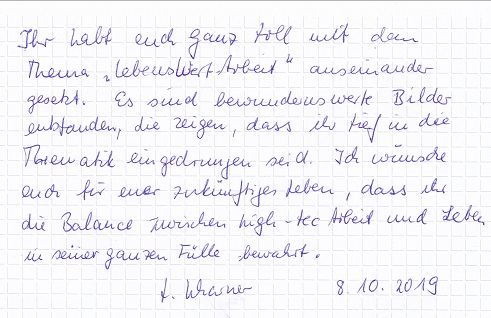 Ihr habt euch ganz toll mit dem
Thema „LebensWertArbeit" auseinander
gesetzt. Es sind bewundernswerte Bilder
entstanden, die zeigen, dass ihr tief in die
Thematik eingedrungen seid. Ich wünsche
euch für euer zukünftiges Leben, dass ihr
die Balance zwischen high-tec Arbeit und Leben
in seiner ganzen Fülle bewahrt.
8.10.2019